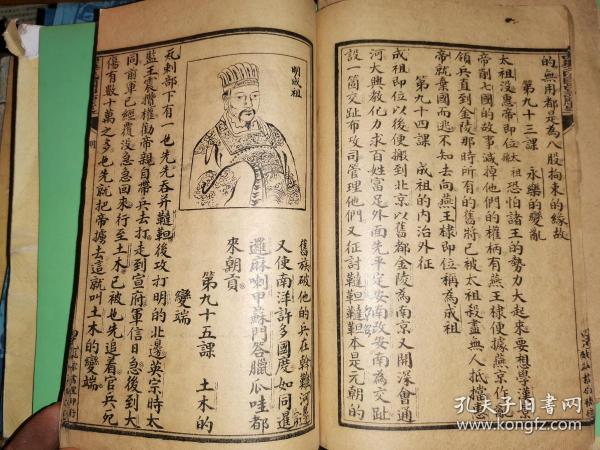 的無用都是為八股拘束的緣故
第九十三課　永樂的變亂
太祖沒惠帝即位
恐怕諸王的勢力大起來要想學漢景
帝削七國的故事減掉他們的權柄有燕王棣便據燕京作亂
領兵直到金陵那時所有的舊將已被太祖殺盡無人抵擋惠
帝就棄國而逃不知去向燕王棣即位稱為成祖
第九十四課　成祖的內治外征
成祖即位以後便搬到北京以舊都金陵為南京又開深會通
河大興教化力求百姓富足外面先平定安南改安南為交趾
設一箇交趾布政司管理他們又征討韃靼韃靼本是元朝的
舊族破他的兵在斡難河
又使南洋許多國度如同暹
邏麻喇甲蘇門答臘瓜哇都
來朝貢
第九十五課　土木的
變端
明成祖
瓦剌部下有一也先先吞并韃靼後攻打明的北邊英宗時太
監王震攬權勸帝親自帶兵去打走到宣府軍信日急後到大
同前軍已經覆沒急急回來行至土木已被也先追着官兵死
傷有數十萬之多也先就把帝擄去這就叫土木的變端
明
孔夫子旧书网
book.kongfz.com